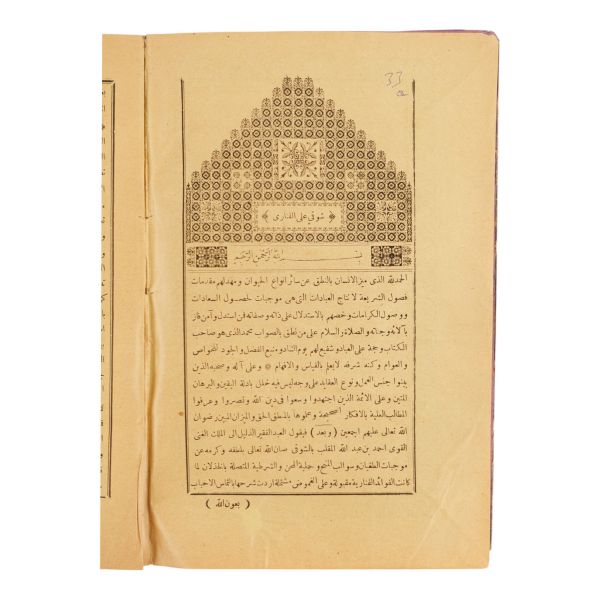 33
﴿ شوقى على الفنارى ﴾
بسم الله الرحمن الرحيم
الحمد لله الذى ميز الانسان بالنطق عن سائر انواع الحيوان ومهد لهم مقدمات
فصول الشريعة لانتاج العبادات التى هى موجبات لحصول السعادات
ووصول الكرامات وخصهم بالاستدلال على ذاته وصفاته فن استدل وآمن فاز
بآلائه وجناته والصلاة والسلام على من نطق بالصواب محمد الذى هو صاحب
الكتاب وحجة على العباد وشفيع لهم يوم التناد ومنبع الفضل والجود للخواص
والعوام وكنه شرفه لايعلم بالقياس والافهام * وعلى آله وصحبه الذين
بينوا جنس العمل ونوع العقايد على وجه ليس فيه خلل بادلة اليقين والبرهان
المتين وعلى الائمة الذين اجتهدوا وسعوا فى دين الله ونصروا وعرفوا
المطالب العلية بالافكار الصحيحة وعملوها بالمنطق الحق والميزان المبين رضوان
الله تعالى عليهم اجمعين ( وبعد ) فيقول العبد الفقير الذليل الى الملك الغنى
القوى احمد بن عبد الله الملقب بالشوقى صان الله تعالى بلطفه وكرمه عن
موجبات الطغيان وسوالب المنح وحملية المحن والشرطية المتصلة بالخذلان لما
كانت الفوائد الفنارية مقبولة وعلى الغموض مشتملة اردت شرحها بالتماس الاحباب
( بعون الله )